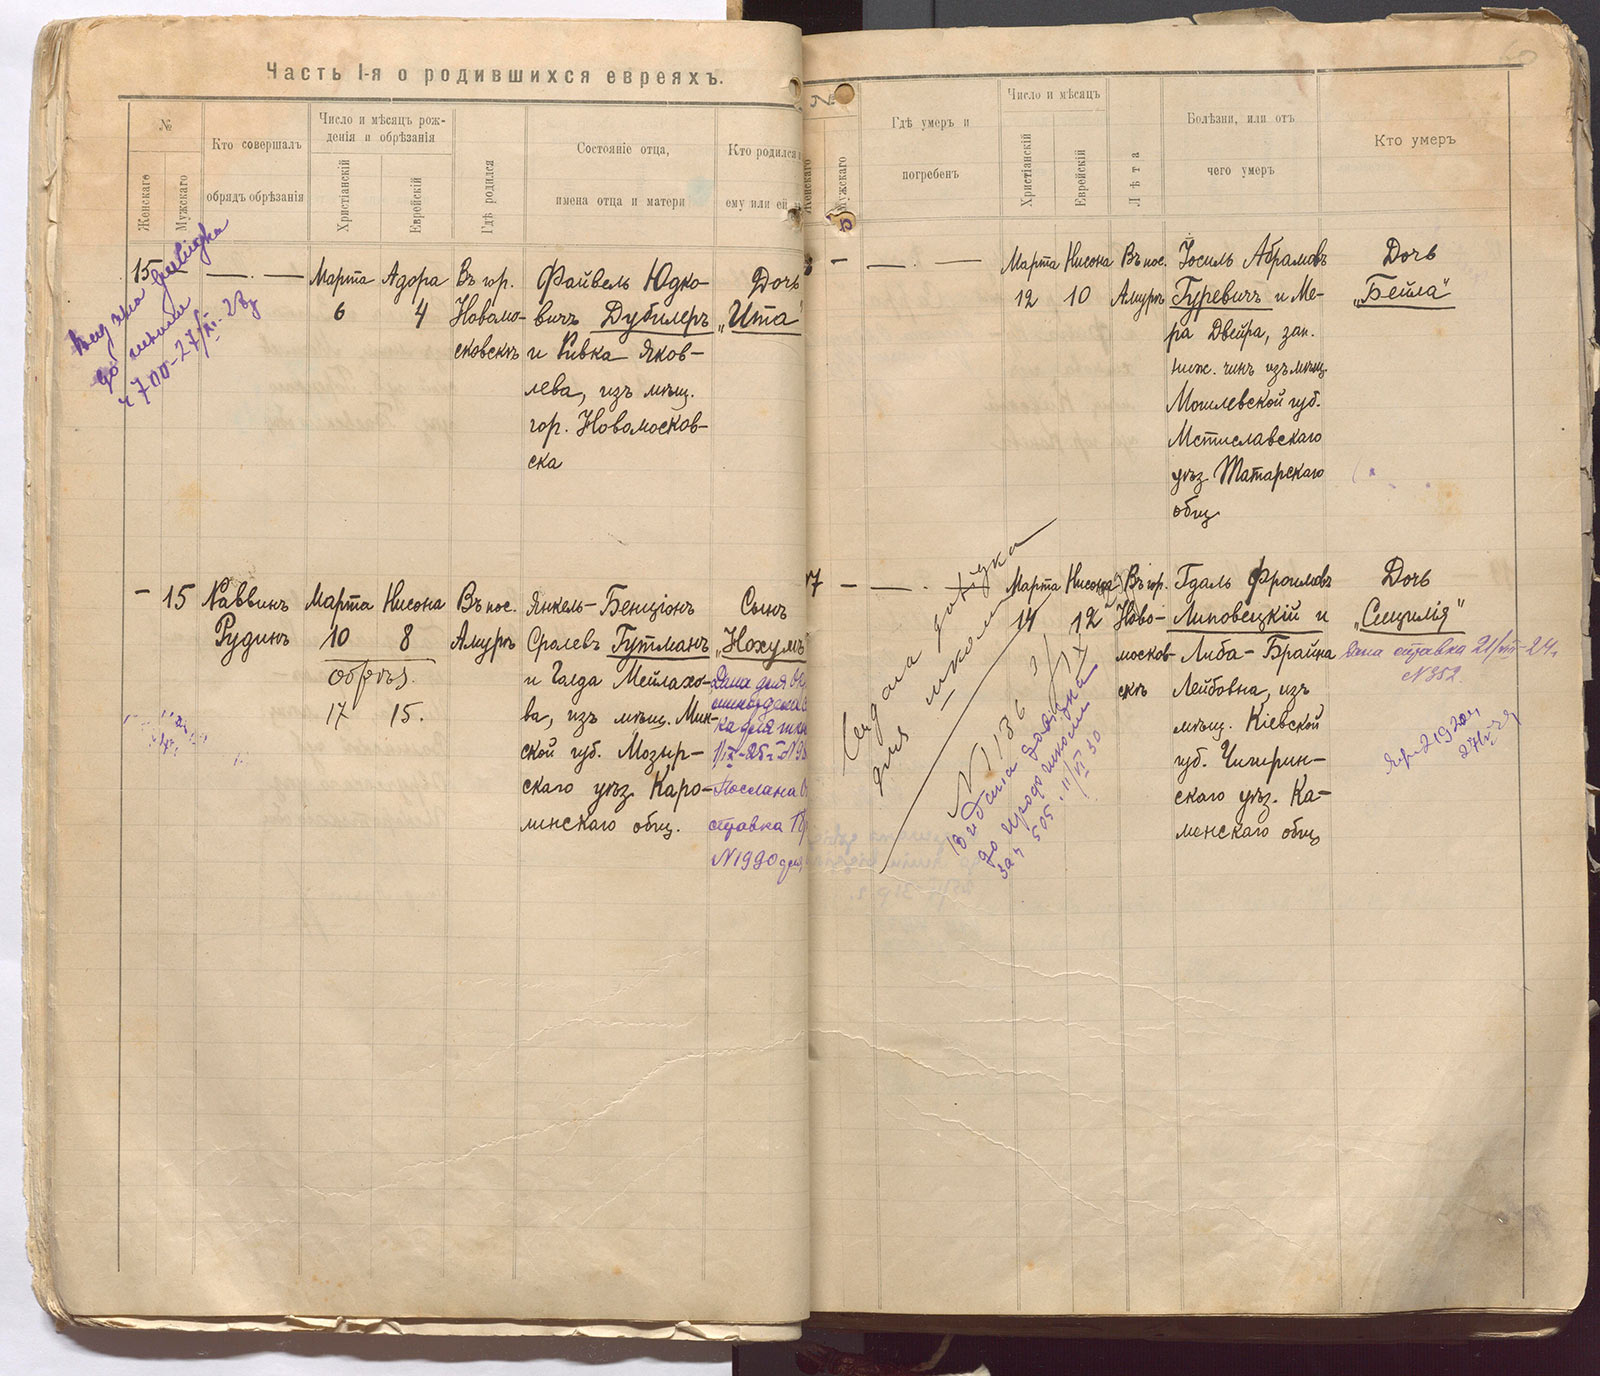 Часть I-я о родившихся евреяхъ.
№
Женскаго
Мужскаго
Кто совершалъ
обрядъ обрѣзанія
Число и мѣсяцъ рож-
денія и обрѣзанія
Христіанскій
Еврейскій
Гдѣ родился
Состояніе отца,
имена отца и матери
Кто родился
ему или ей
15
Марта
6
Адора
4
Въ гор.
Новомо-
сковскѣ
Файвель Юдко-
вичъ Дубилеръ
и Ривка Яков-
лева, изъ мѣщ.
гор. Новомосков-
ска
Дочь
„Ита"
до школи
ч 700-27/XI-28
15
Раввинъ
Рудинъ
Марта
10
обрѣз.
17
Нисона
8
15.
Въ пос.
Амурѣ
Янкель-Бенціонъ
Сролевъ Гутманъ
и Голда Мейлахо-
ва, изъ мѣщ. Мин-
ской губ. Мозыр-
скаго уѣз. Каро-
линскаго общ.
Сынъ
„Нохумъ"
Дана для
Послана
справка
№1990
Женскаго
Мужскаго
Гдѣ умеръ и
погребенъ
Число и мѣсяцъ
Христіанскій
Еврейскій
Лѣта
Болѣзни, или отъ
чего умеръ
Кто умеръ
Марта
12
Нисона
10
Въ пос.
Амурѣ
Іосиль Абрамовъ
Гуревичъ и Ме-
ра Двейра, зап.
ниж. чинъ изъ мѣщ.
Могилевской губ.
Мстиславскаго
уѣз. Татарскаго
общ.
Дочь
„Бейла"
17
Марта
14
Нисона
12
Въ гор.
Ново-
москов-
скѣ
Гдаль Фроимовъ
Липовецкій и
Либа-Брайна
Лейбовна, изъ
мѣщ. Кіевской
губ. Чигирин-
скаго уѣз. Ка-
менскаго общ.
Дочь
„Сецилія"
Дана справка 21/VII-24.
№352.
для школи
№1136
до профшколи
за ч 505. 11/VI 30